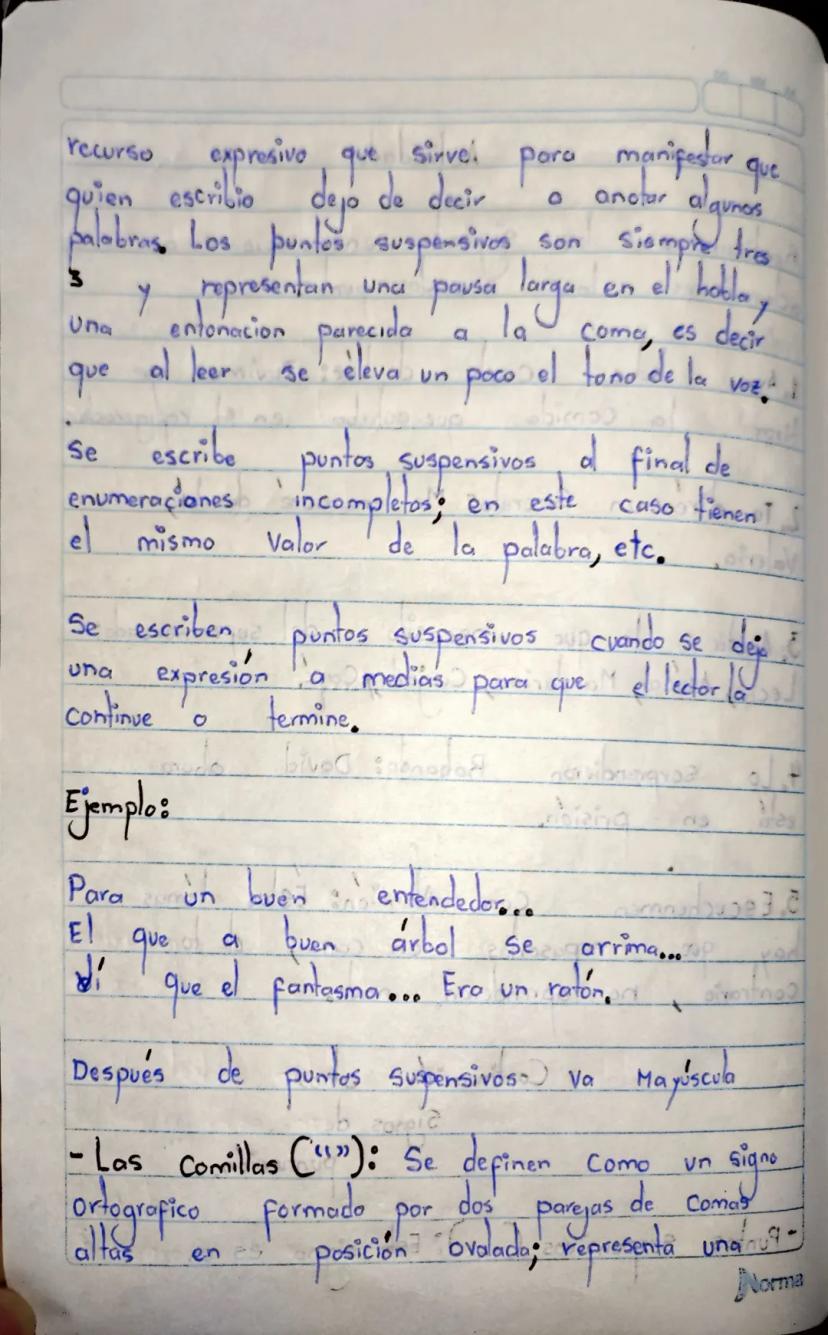 recurso expresivo que sirve para manifestar que
quien escribio dejo de decir o anotar algunas
palabras. Los puntos suspensivos son siempre tres
3 y representan una pausa larga en el habla y
una entonacion parecida a la coma, es decir
que al leer se eleva un poco el tono de la voz.
Se escribe puntos suspensivos al final de
enumeraciones incompletas; en este caso tienen
el mismo valor de la palabra, etc.
Se escriben puntos suspensivos cuando se deja
una expresión a medias para que el lector la
continue o termine.
Ejemplo:
Para un buen entendedor...
El que a buen árbol se arrima...
Ví que el fantasma... Era un ratón.
Después de puntos suspensivos va Mayúscula
- Las comillas (“”): Se definen como un signo
ortografico formado por dos parejas de comas
altas en posición ovalada; representa una
Norma